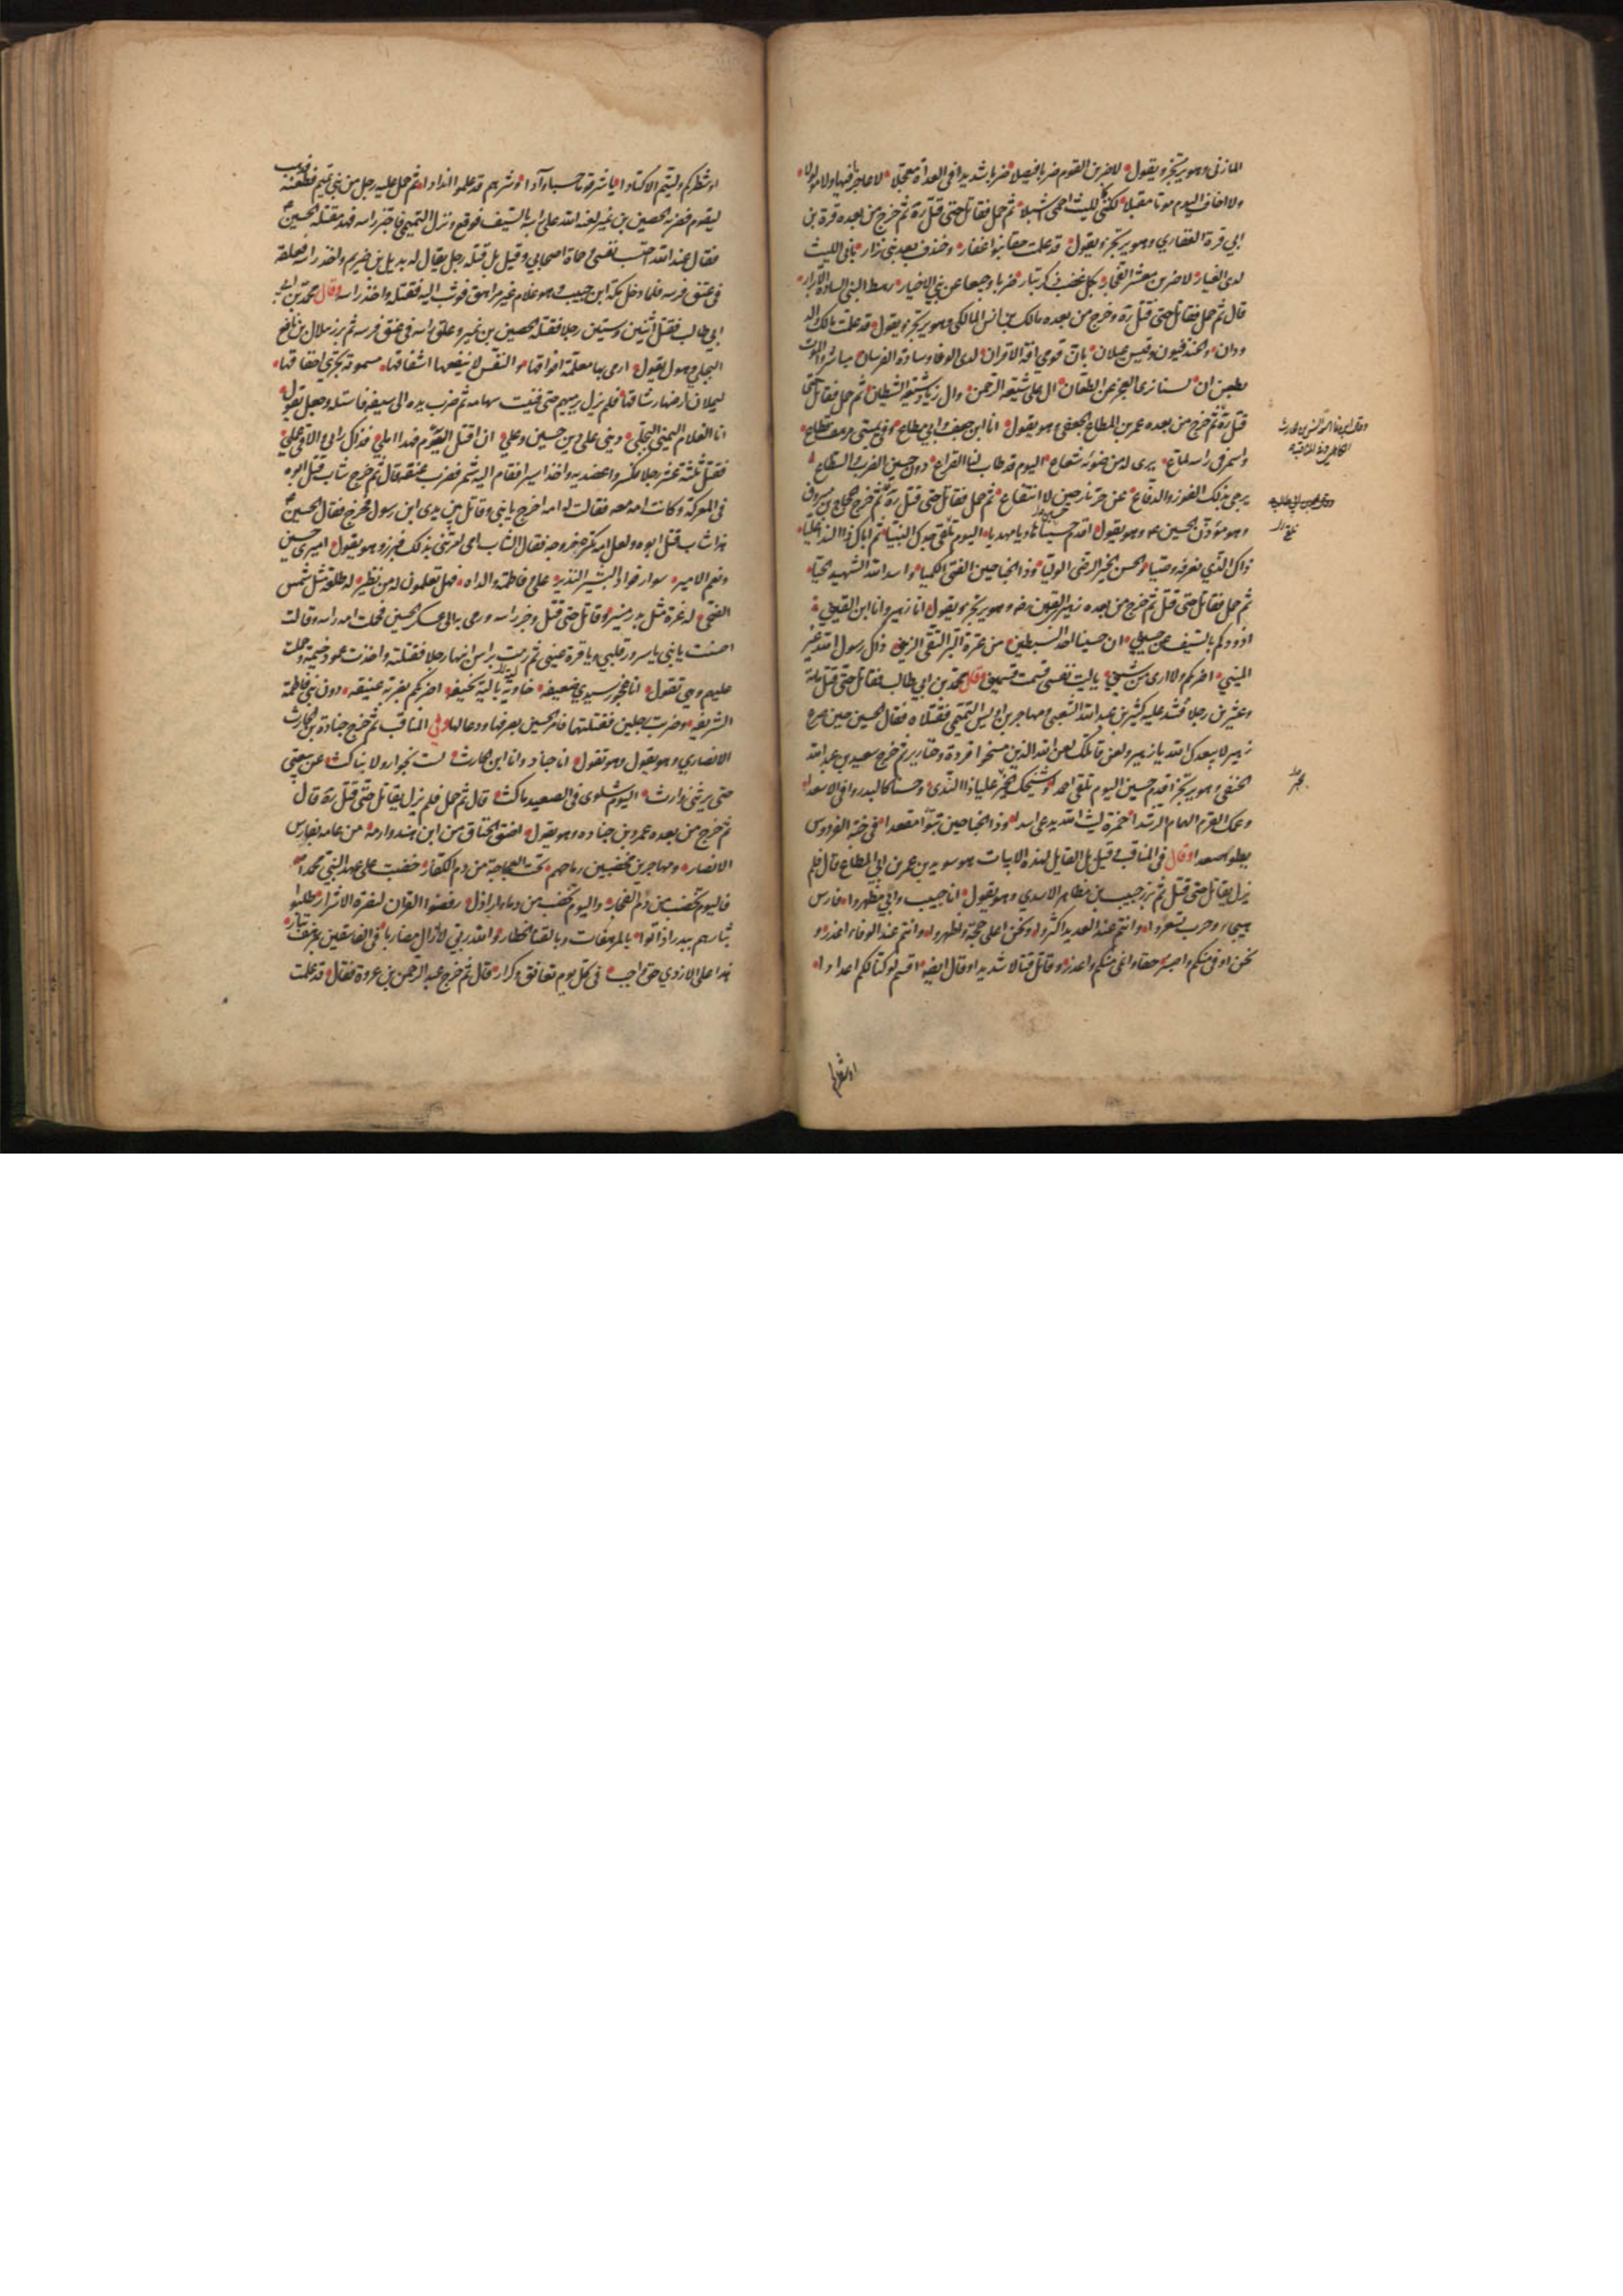 المازني وهو يرتجز ويقول لاضربن القوم ضربا فيصلا ضربا شديدا في العداة معجلا لا عاجزا فيها ولا مولولا
ولا اخاف اليوم موتا مقبلا لكنني كالليث احمي اشبلا ثم حمل فقاتل حتى قتل ره ثم خرج من بعده قرة بن
ابي قرة الغفاري وهو يرتجز ويقول قد علمت حقا بنو غفار وخندف بعد بني نزار باني الليث
لدى الغيار لاضربن معشر الفجار بكل عضب ذكر بتار ضربا وجيعا عن بني الاخيار رهط النبي السادة الابرار
قال ثم حمل فقاتل حتى قتل ره وخرج من بعده مالك بن انس المالكي وهو يرتجز ويقول قد علمت مالك والد
ودان والخندفيون وقيس عيلان بان قومي افة الاقران لدى الوغا وسادة الفرسان مباشروا الموت
بطعن ان لسنا نرى العجز عن الطعان ال علي شيعة الرحمن وال زياد شيعة الشيطان ثم حمل فقاتل حتى
قتل ره ثم خرج من بعده عمر بن المطاع الجعفي وهو يقول انا ابن جعف وابي مطاع وفي يميني مرهف قطاع
واسمر في راسه لماع يرى له من ضوئه شعاع اليوم قد طاب لنا القراع دون حسين الضرب والسطاع
يرجى بذلك الفوز والدفاع عن حر نار حين لا انتفاع ثم حمل فقاتل حتى قتل ره ثم خرج حجاج بن مسروق
وهو مؤذن الحسين ع وهو يقول اقدم حسين هاديا مهديا اليوم تلقى جدك النبيا ثم اباك ذا الندا عليا
ذاك الذي نعرفه وصيا والحسن الخير الرضى الوليا وذا الجناحين الفتى الكميا واسد الله الشهيد الحيا
ثم حمل فقاتل حتى قتل ثم خرج من بعده زهير القين رضه وهو يرتجز ويقول انا زهير وانا ابن القين
اذودكم بالسيف عن حسين ان حسينا احد السبطين من عترة البر التقي الزين ذاك رسول الله غير
المين اضربكم ولا ارى من شين يا ليت نفسي قسمت قسمين وقال محمد بن ابي طالب فقاتل حتى قتل مائة
وعشرين رجلا فشد عليه كثير بن عبد الله الشعبي ومهاجر بن اوس التميمي فقتلاه فقال الحسين حين صرع
زهير لا يبعدك الله يا زهير ولعن قاتلك لعن الذين مسخوا قردة وخنازير ثم خرج سعيد بن عبد الله
الحنفي وهو يرتجز اقدم حسين اليوم تلقى احمدا وشيخك الخير عليا ذا الندى وحسنا كالبدر وافى الاسعدا
وعمك القرم الهمام الارشدا حمزة ليث الله يدعى اسدا وذا الجناحين تبوأ مقعدا في جنة الفردوس
يعلو صعدا وقال في المناقب وقيل بل القايل لهذه الابيات هو سويد بن عمر بن ابي المطاع قال فلم
يزل يقاتل حتى قتل ثم برز حبيب بن مظاهر الاسدي وهو يقول انا حبيب وابي مظهر فارس
هيجاء وحرب تسعر وانتم عند العديد اكثر ونحن اعلى حجة واظهر وانتم عند الوفاء اغدر و
نحن اوفى منكم واصبر حقا وانمى منكم واعذر وقاتل قتالا شديدا وقال ايضا اقسم لو كنا لكم اعدادا
او شطركم
او شطركم وليتم الاكتادا يا شر قوم حسبا وآدا وشرهم قد علموا اندادا ثم حمل عليه رجل من بني تميم فطعنه فذهب
ليقوم فضربه الحصين بن نمير لعنه الله على راسه بالسيف فوقع ونزل التميمي فاحتز راسه فهد مقتله الحسين ع
فقال عند الله احتسب نفسي وحماة اصحابي وقيل بل قتله رجل يقال له بديل بن صريم واخذ راسه فعلقه
في عنق فرسه فلما دخل مكة ابن حبيب وهو غلام غير مراهق فوثب اليه فقتله واخذ راسه وقال محمد بن
ابي طالب فقتل اثنين وستين رجلا فقتله الحصين بن نمير وعلق راسه في عنق فرسه ثم برز هلال بن نافع
البجلي وهو يقول ارمي بها معلمة افواقها والنفس لا ينفعها اشفاقها مسمومة تجري اخفاقها
ليملأن ارضها رشاقها فلم يزل يرميهم حتى فنيت سهامه ثم ضرب يده الى سيفه فاستله وجعل يقول
انا الغلام اليمني البجلي ديني على دين حسين وعلي ان اقتل اليوم فهذا املي فذاك رايي والاقي عملي
فقتل ثلثة عشر رجلا فكسروا عضديه واخذ اسيرا فقام اليه شمر فضرب عنقه قال ثم خرج شاب قتل ابوه
في المعركة وكانت امه معه فقالت له امه اخرج يا بني وقاتل بين يدي ابن رسول فخرج فقال الحسين ع
هذا شاب قتل ابوه ولعل امه تكره خروجه فقال الشاب امي امرتني بذلك فبرز وهو يقول اميري حسين
ونعم الامير سرور فواد البشير النذير علي وفاطمة والداه فهل تعلمون له من نظير له طلعة مثل شمس
الضحى له غرة مثل بدر منير وقاتل حتى قتل وجز راسه ورمي به الى عسكر الحسين فحملت امه راسه وقالت
احسنت يا بني يا سرور قلبي ويا قرة عيني ثم رمت براس ابنها رجلا فقتلته واخذت عمود خيمة وحملت
عليهم وهي تقول انا عجوز سيدي ضعيفة خاوية بالية نحيفة اضربكم بضربة عنيفة دون بني فاطمة
الشريفة وضربت رجلين فقتلتهما فامر الحسين بصرفها ودعا لها وفي المناقب ثم خرج جنادة بن الحارث
الانصاري وهو يقول وهو يقول انا جناد وانا ابن الحارث لست بخوار ولا بناكث عن بيعتي
حتى يرثني وارث اليوم شلوي في الصعيد ماكث قال ثم حمل فلم يزل يقاتل حتى قتل ره قال
ثم خرج من بعده عمرو بن جناده وهو يقول اضق الخناق من ابن هند وارمه من عامه بفوارس
الانصار ومهاجرين مخضبين رماحهم تحت العجاجة من دم الكفار خضبت على عهد النبي محمد
فاليوم تخضب من دم الفجار واليوم تخضب من دماء اراذل رفضوا القران لنصرة الاشرار طلبوا
بثارهم ببدر اذ اتوا بالمرهفات وبالقنا الخطار والله ربي لا ازال مضاربا في الفاسقين بمرهف بتار
هذا على الازدي حق واجب في كل يوم تعانق وكرار قال ثم خرج عبد الرحمن بن عروة فقال قد علمت